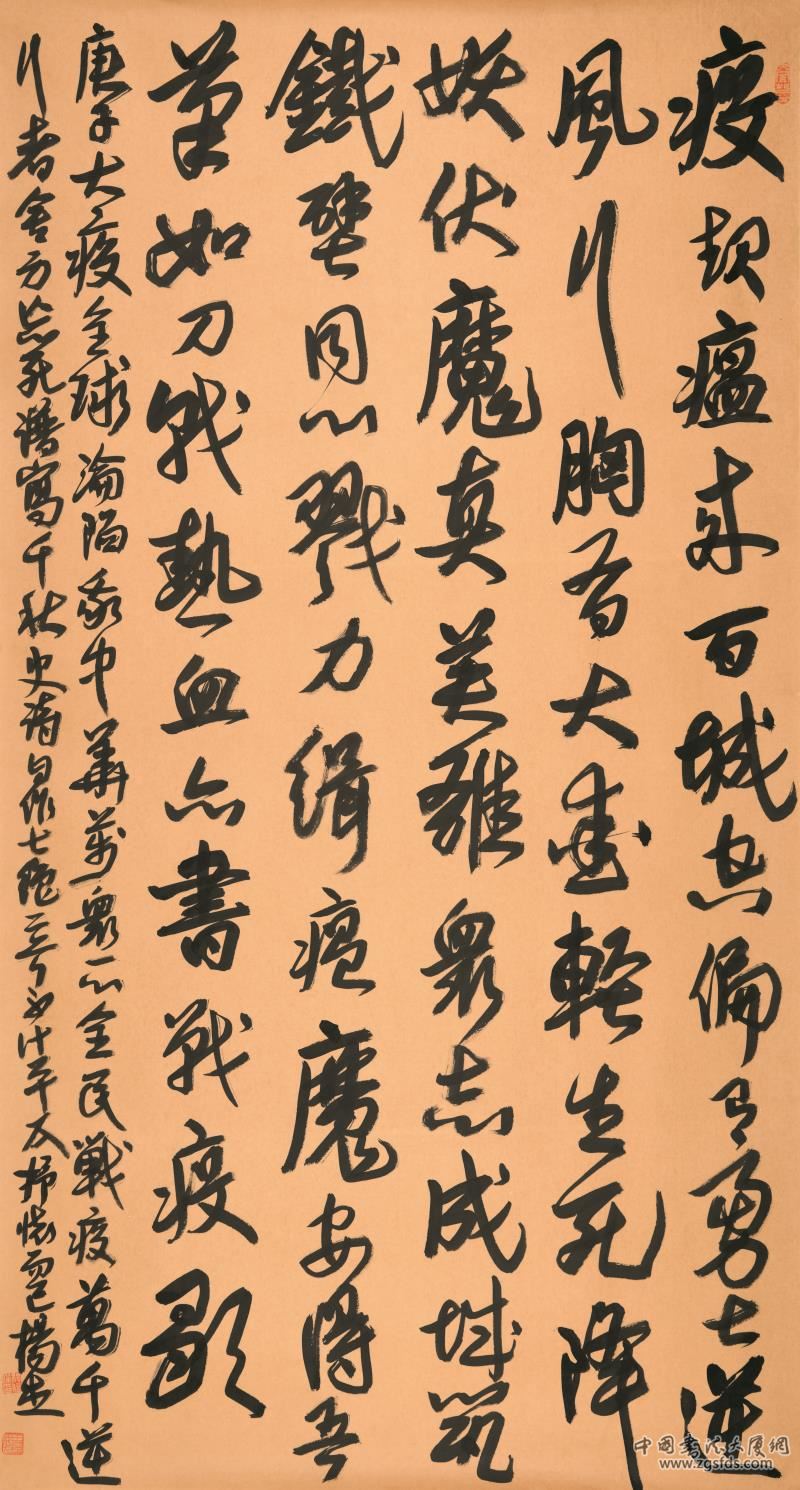 疫起瘟來百城空偏有勇士逆
風行胸有大愛輕生死降
妖伏魔真英雄眾志成城築
鐵壁同心戮力緝瘟魔安得吾
筆如刀戟熱血亦書戰疫歌
庚子大疫全球淪陷我中華萬眾一心全民戰疫萬千逆
行者舍方忘死譜寫千秋史詩自作七絕二首
中國書法大廈網
www.zgsfds.com